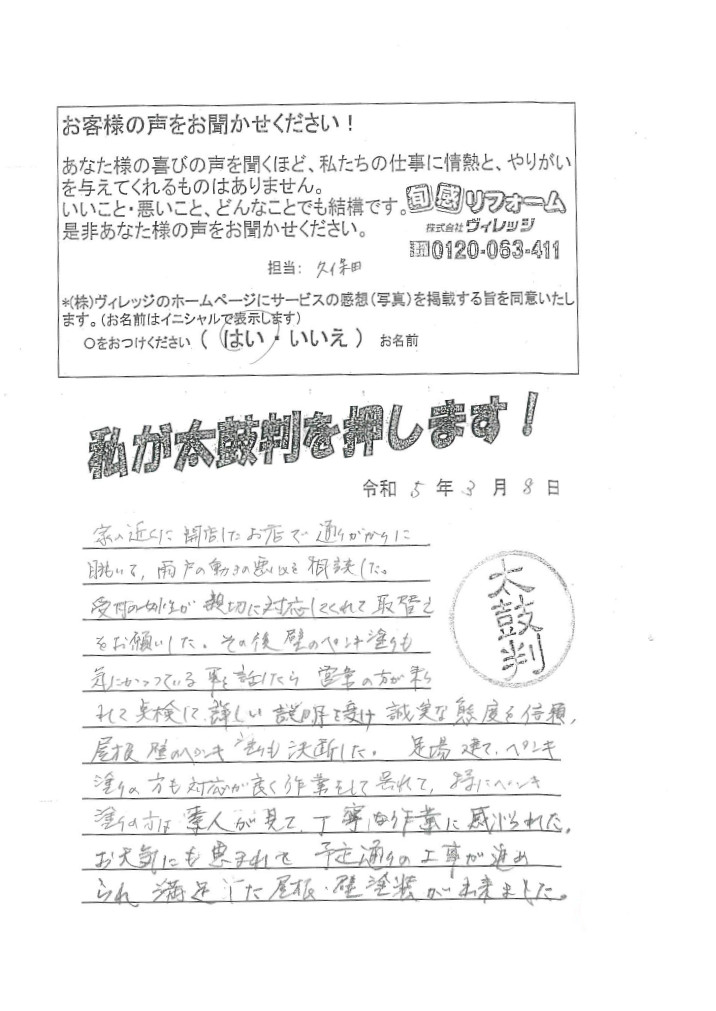 お客様の声をお聞かせください！
あなた様の喜びの声を聞くほど、私たちの仕事に情熱と、やりがい
を与えてくれるものはありません。
いいこと・悪いこと、どんなことでも結構です。
是非あなた様の声をお聞かせください。
旬感リフォーム
株式会社ヴィレッジ
0120-063-411
担当: 久保田
*(株)ヴィレッジのホームページにサービスの感想(写真)を掲載する旨を同意いたし
ます。(お名前はイニシャルで表示します)
〇をおつけください ( はい ・ いいえ ) お名前
私が太鼓判を押します！
令和 5 年 3 月 8 日
家の近くに開店したお店で通りがかりに
覗いて、雨戸の動きの悪いを相談した。
受付の女性が親切に対応してくれて取替え
をお願いした。その後壁のペンキ塗りも
気にかかっている事を話したら営業の方が来ら
れて点検して、詳しい説明を受け誠実な態度を信頼、
屋根壁のペンキ塗りも決断した。足場建て、ペンキ
塗りの方も対応が良く作業をして呉れて、特にペンキ
塗りの方は素人が見て、丁寧な作業に感じられた。
お天気にも恵まれて予定通りの工事が進め
られ満足した屋根・壁塗装が出来ました。
太鼓判